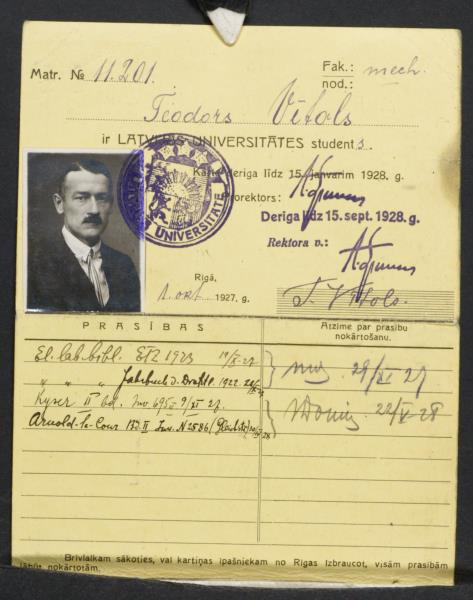 Matr. № 11.201.
Fak.: mech.
nod.:
Teodors Vītols
ir LATVIJAS UNIVERSITĀTES students.
Karte derīga līdz 15. janvarim 1928. g.
Prorektors:
Derīga līdz 15. sept. 1928. g.
Rektora v.:
Rīgā,
1. okt. 1927. g.
T. Vītols.
UNIVERSITĀTE
PRASĪBAS
Atzīme par prasību
nokārtošanu.
El. lab. bibl. ETZ 1923
" " " Jahrbuch d. 1922.
29/XI 27
Kyser II bd. Inv. 695 9/XI 27.
Arnold-la-Cour Bd. II Inv. N 2586
22/V-28
Brīvlaikam sākoties, vai kartiņas īpašniekam no Rīgas izbraucot, visām prasībām
jābūt nokārtotām.